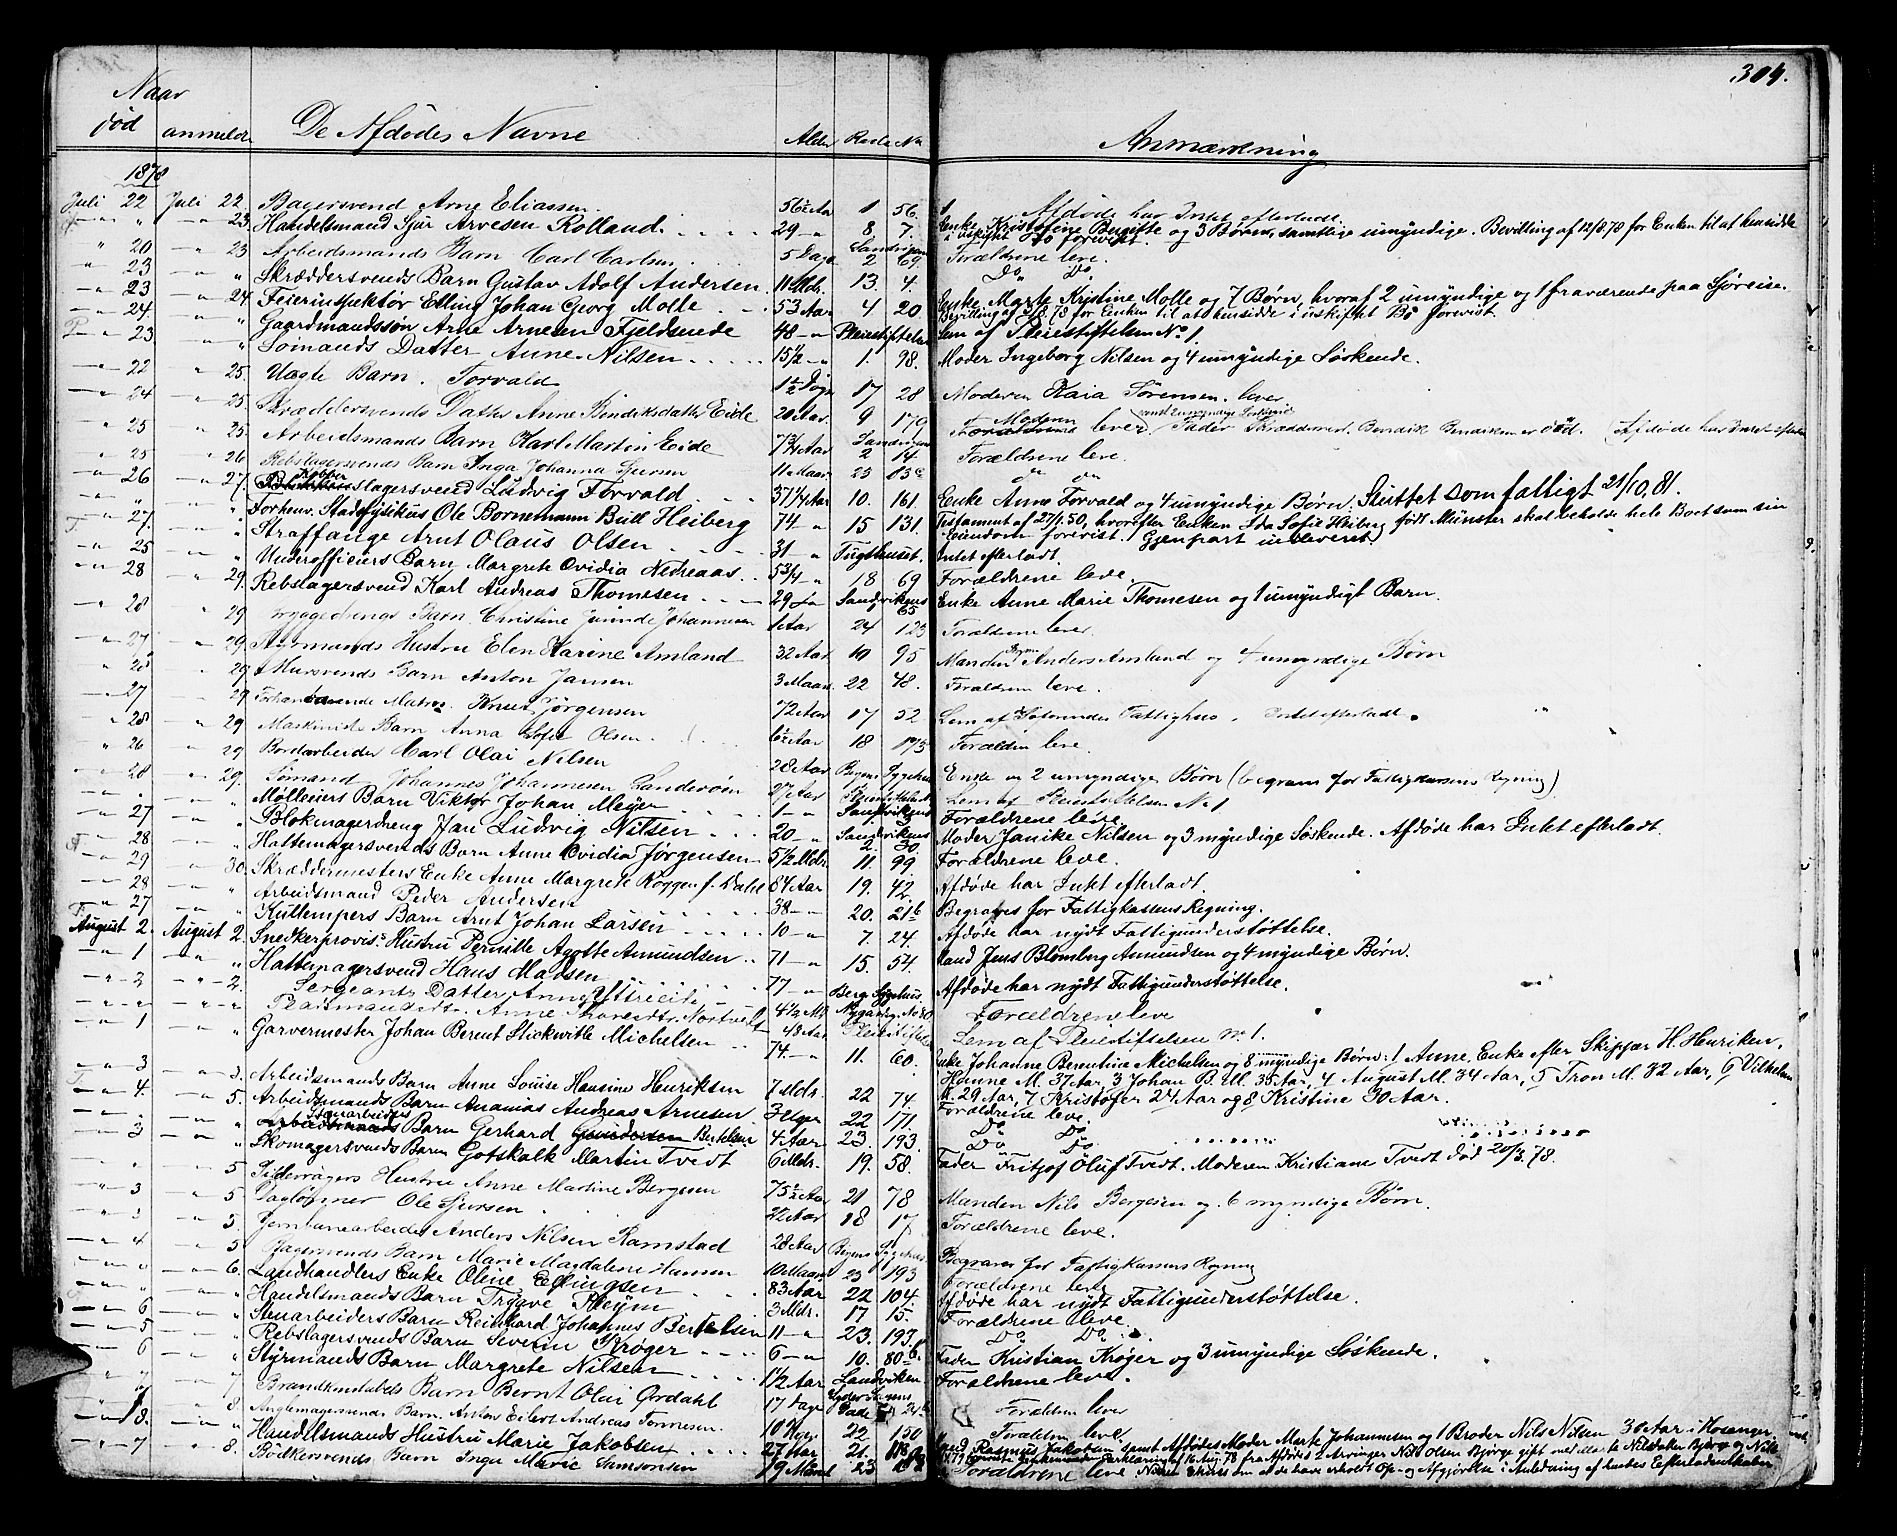 304.
Naar
død anmeldt De Afdødes Navne Alder Rode No Anmærkning
1878
Juli 22 Juli 22. Bagersvend Arne Eliassen 56½ Aar 1 56. Afdøde har Intet efterladt.
" 23. Handelsmand Sjur Arvesen Rolland. 29 " 8. 7. Enke Kristofine Bergitte og 3 Børn, samtlige umyndige. Bevilling af 12/8.78 for Enken til at hensidde i uskiftet Bo forevist.
" 20 " 23 Arbeidsmands Barn Carl Carlsen 5 Dage Sandvigen 2 69. Forældrene leve.
" 23 " " Skræddersvends Barn Gustav Adolf Andersen 11 Mdr. 13. 4. Do Do
" 23 " 24. Feierinspektør Elling Johan Georg Molle 53 Aar 4 20 Enke Marte Kristine Molle og 7 Børn, hvoraf 2 umyndige og 1 fraværende paa Sjøreise.
Bevilling af 3/8.78 for Enken til at hensidde i uskiftet Bo forevist.
" 24 " " Gaardmandssøn Arne Arnesen Fjeldsnede 48 " Pleiestiftelsen Lem af Pleiestiftelsen No 1.
" 23 " " Sømands Datter Anne Nilsen 15½ " 1. 98. Moder Ingeborg Nilsen og 4 umyndige Søskende.
" 22 " 25. Uægte Barn. Torvald 1½ Døgn 17 28 Moderen Kaia Sørensen lever
" 24 " 25. Skræddersvends Datter Anne Bendiksdatter Eide 20 Aar. 9 179 Forældrene Moderen lever samt umyndige Søskende Fader Skræddersvd. Bendik Bendiksen er død. (Afdøde har Intet efterladt
" 25 " 25. Arbeidsmands Barn Karl Martin Eide 7¾ Aar Sandvigen 2 14 Forældrene leve.
" 25 " 26 Rebslagersvends Barn Inga Johanna Sjursen 11 Maan 23 83c do do
" 26 " 27. Kobberslagersvend Ludvig Torvald 37¼ Aar 10. 161. Enke Anne Torvald og 4 umyndige Børn. Sluttet som fattigt 21/10.81.
" " " Forhenv. Stadsfysikus Ole Bornemann Bull Heiberg 74 " 15 131. Testament af 27/1.50, hvorefter Enken Ida Sofie Heiberg født Münster skal beholde hele Boet som sin Eiendom forevist. (Gjenpart indleveret)
" 27 " " Straffange Arnt Olaus Olsen 31 " Tugthuset. Intet efterladt.
" 25 " " Underofficiers Barn Margrete Ovidia Nedreaas 5¾ " 18 69 Forældrene leve.
" 28 " 29. Rebslagersvend Karl Andreas Thomesen 29 Aar Sandvikens 65 Enke Anne Marie Thomesen og 1 umyndigt Barn.
" 28 " 29 Bryggedrengs Barn Christine Johannesen 1 Aar 24 123 Forældrene lever.
" 27 " 29. Styrmands Hustru Elen Karine Amland 32 Aar 10 95 Manden Anders Amland og 4 umyndige Børn
" 28 " 29 Mursvends Barn Anton Jansen 3 Maan 22 48. Forældrene leve.
" 27 " 29. Forhenværende Matros Knud Jørgensen 72 Aar 17 52 Lem af Søfarendes Fattighus. Intet efterladt.
" 28 " 29. Maskinists Barn Anna Sofie Olsen 6½ Aar 18 173 Forældrene leve.
" 26 " 29 Bordarbeider Carl Olai Nilsen 28 Aar Bergens Sygehus Enke og 2 umyndige Børn (begraves for Fattigkassens Regning)
" 28 " 29. Sømand Johannes Johannesen Sanderøen 27 Aar Pleiestiftelsen Lem af Pleiestiftelsen No 1
" " " Mølleiers Barn Viktor Johan Meyer 1 " Sandvikens 9 Forældrene leve.
" 27 " " Blokmagerdreng Jan Ludvig Nilsen 20 " Sandvikens 2 30. Moder Janike Nilsen og 3 myndige Søskende. Afdøde har Intet efterladt.
" 28 " " Hattemagersvends Barn Anne Ovidia Jørgensen 5½ Mdr. 11. 99 Forældrene leve.
" 29 " 30. Skræddermesters Enke Anne Margrete Roggen f. Dahl 84 Aar 19. 42. Afdøde har Intet efterladt.
" 28 " " Arbeidsmand Peder Andersen 38 " 20. 21b Begraves for Fattigkassens Regning.
" 27 " " Kultempers Barn Arnt Johan Larsen 10 " 7. 24. Afdøde har nydt Fattigunderstøttelse.
August 2. August 2. Snedkerprovis. Hustru Pernille Agotte Amundsen 71 " 15. 54. Mand Jens Blomberg Amundsen og 4 myndige Børn.
" 1 " " Hattemagersvend Hans Madsen 77 " Berg. Sygehus Afdøde har nydt Fattigunderstøttelse.
" 2 " 2. Sergeants Datter Anna 4½ M. Nygaardsg. No 80 Forældrene leve
" " " " Anne 48 Aar Pleiestiftelsen Lem af Pleiestiftelsen No 1.
" 1 " " Garvermester Johan Berent Stickwitte Michelsen 74. " 11. 60. Enke Johanne Berentine Michelsen og 8 myndige Børn: 1 Anne, Enke efter Skipper H. Henriksen,
Hanne M. 37 Aar, 3 Johan B. M. 35 Aar, 4 August M. 34 Aar, 5 Tron M. 32 Aar, 6 Vilhelm
M. 29 Aar, 7 Kristofer 24 Aar og 8 Kristine 30 Aar.
" 3 " 3. Arbeidsmands Barn Anne Louise Hansine Henriksen 7 Mdr. 22 74. Forældrene leve.
" 4. " 5. Arbeidsmands Barn Ananias Andreas Arnesen 3 Uger 22 171. Do Do
" " " " Arbeidsmands Stenarbeiders Barn Gerhard Bertelsen 4 Aar 23. 193. Do Do
" 3 " " Skomagersvends Barn Gotskalk Martin Tvedt 6 Mdr. 19. 58. Fader Fritjof Oluf Tvedt. Moderen Kristiane Tvedt død 20/3.78.
" " " 5 Hustru Anne Martine Bergesen 75½ Aar 21 78 Manden Nils Bergesen og 6 myndige Børn.
" 3 " 5 Dagløner Ole Sjursen 22 Aar 18 17 Forældrene leve.
" 3 " 5. Jernbanearbeider Anders Nilsen Ramstad 28 Aar Bergens Sygehus Begraves for Fattigkassens Regning
" 4 " 5 Bagersvends Barn Marie Magdalene Hansen 10 Maan 23 193 Forældrene leve
" " " 6. Landhandlers Enke Oline Ellingsen 83 Aar 22 104 Afdøde har nydt Fattigunderstøttelse.
" " " " Handelsmands Barn Trygve Pleym 3 Mdr. 17 15. Forældrene leve.
" 6 " " Stenarbeiders Barn Reinhard Johannes Bertelsen 11 " 23. 193. Do Do
" 5 " " Rebslagersvends Barn Severin Krøger 6 " 10. 80b. Fader Kristian Krøger og 3 umyndige Søskende.
" 6 " " Styrmands Barn Margrete Nilsen 1½ Aar Sandviken. Forældrene leve.
" 7 " 7 Brandkonstabels Barn Bernt Olai Ørdahl 17 Dage Forældrene lever
" 8. " 8 Barn. Anton Eilert Andreas Tormesen 10 22 150 Forældrene leve.
" " " " Handelsmands Hustru Marie Jakobsen 27 Aar 21. 118 Mand Rasmus Jakobsen samt Afdødes Moder Marte Johannesen og 1 Broder Nils Nilsen 30 Aar i Hosanger.
" 7 " 8. Bødkersvends Barn Inga Marie Samsonsen 19 Maan 23 Forældrene leve